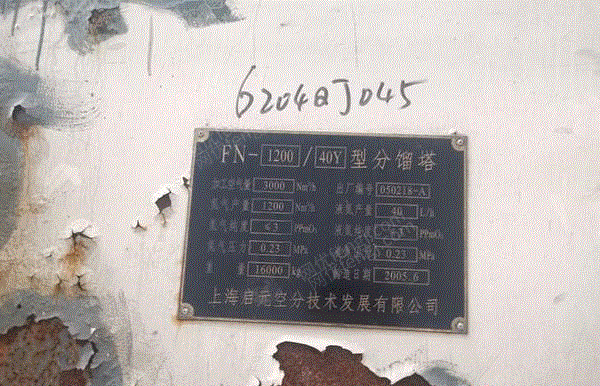 6204QJ045
FN-1200/40Y型分馏塔
加工空气量 3000 Nm³/h 出厂编号 050218-A
氮气产量 1200 Nm³/h 液氮产量 40 L/h
氮气纯度 ≤3 PPmO₂ 液氮纯度 PPmO₂
氮气压力 0.23 MPa 0.23 MPa
重 量 16000 kg 制造日期 2005.6
上海启元空分技术发展有限公司